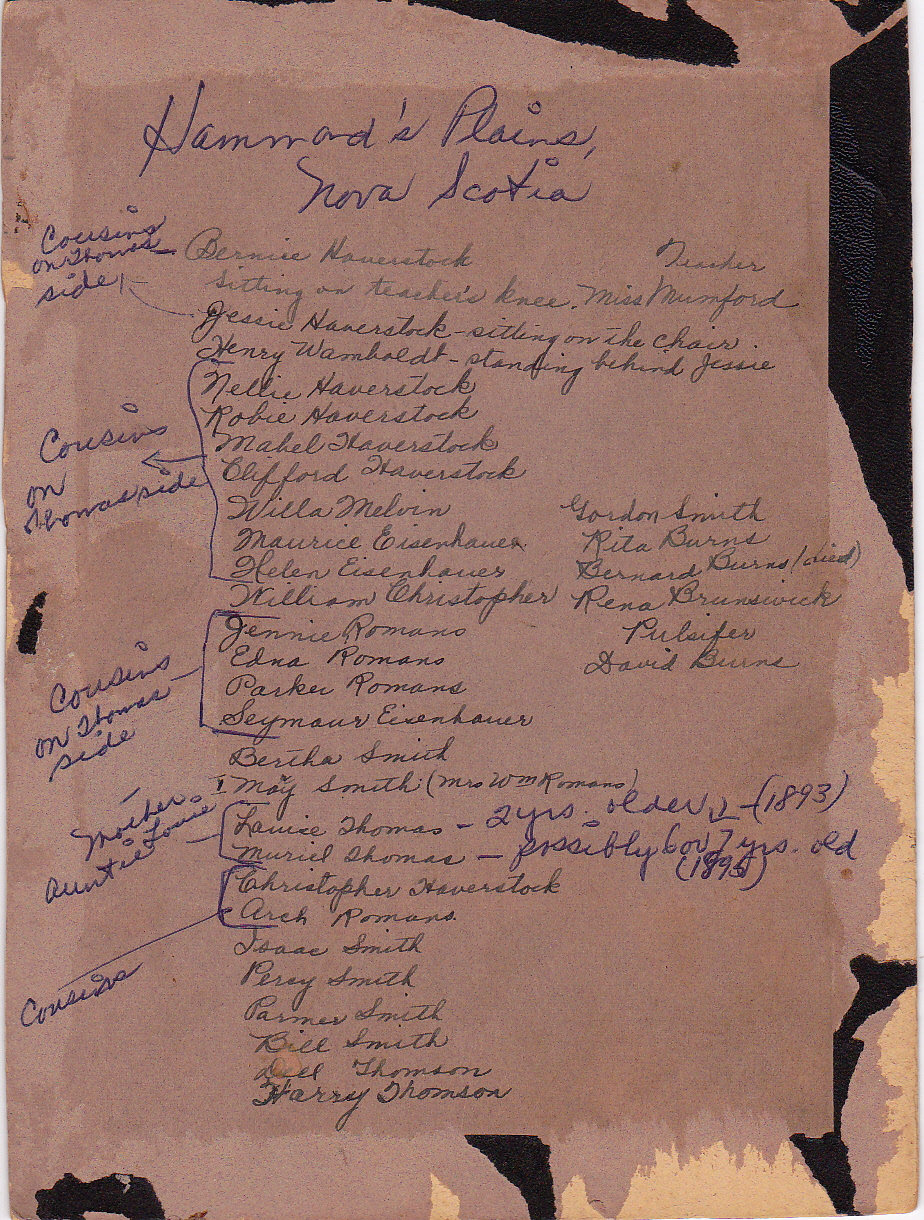 Hammond's Plains,
Nova Scotia
Cousins
on Thomas
side
Bernice Haverstock
Teacher
sitting on teacher's knee. Miss Mumford
Jessie Haverstock - sitting on the chair
Henry Wamboldt - standing behind Jessie
Cousins
on
Thomas side
Nellie Haverstock
Robie Haverstock
Mabel Haverstock
Clifford Haverstock
Willa Melvin
Maurice Eisenhauer
Helen Eisenhauer
William Christopher
Gordon Smith
Rita Burns
Bernard Burns (died)
Rena Brunswick
Pulsifer
David Burns
Cousins
on Thomas
side
Jennie Romans
Edna Romans
Parker Romans
Seymaur Eisenhauer
Bertha Smith
May Smith (Mrs Wm Romans)
Mother
Auntie Louie
Louise Thomas - 2 yrs. older - (1893)
Muriel Thomas - possibly 6 or 7 yrs. old
(1895)
Cousins
Christopher Haverstock
Arch Romans
Isaac Smith
Percy Smith
Parmer Smith
Bill Smith
Thomson
Harry Thomson